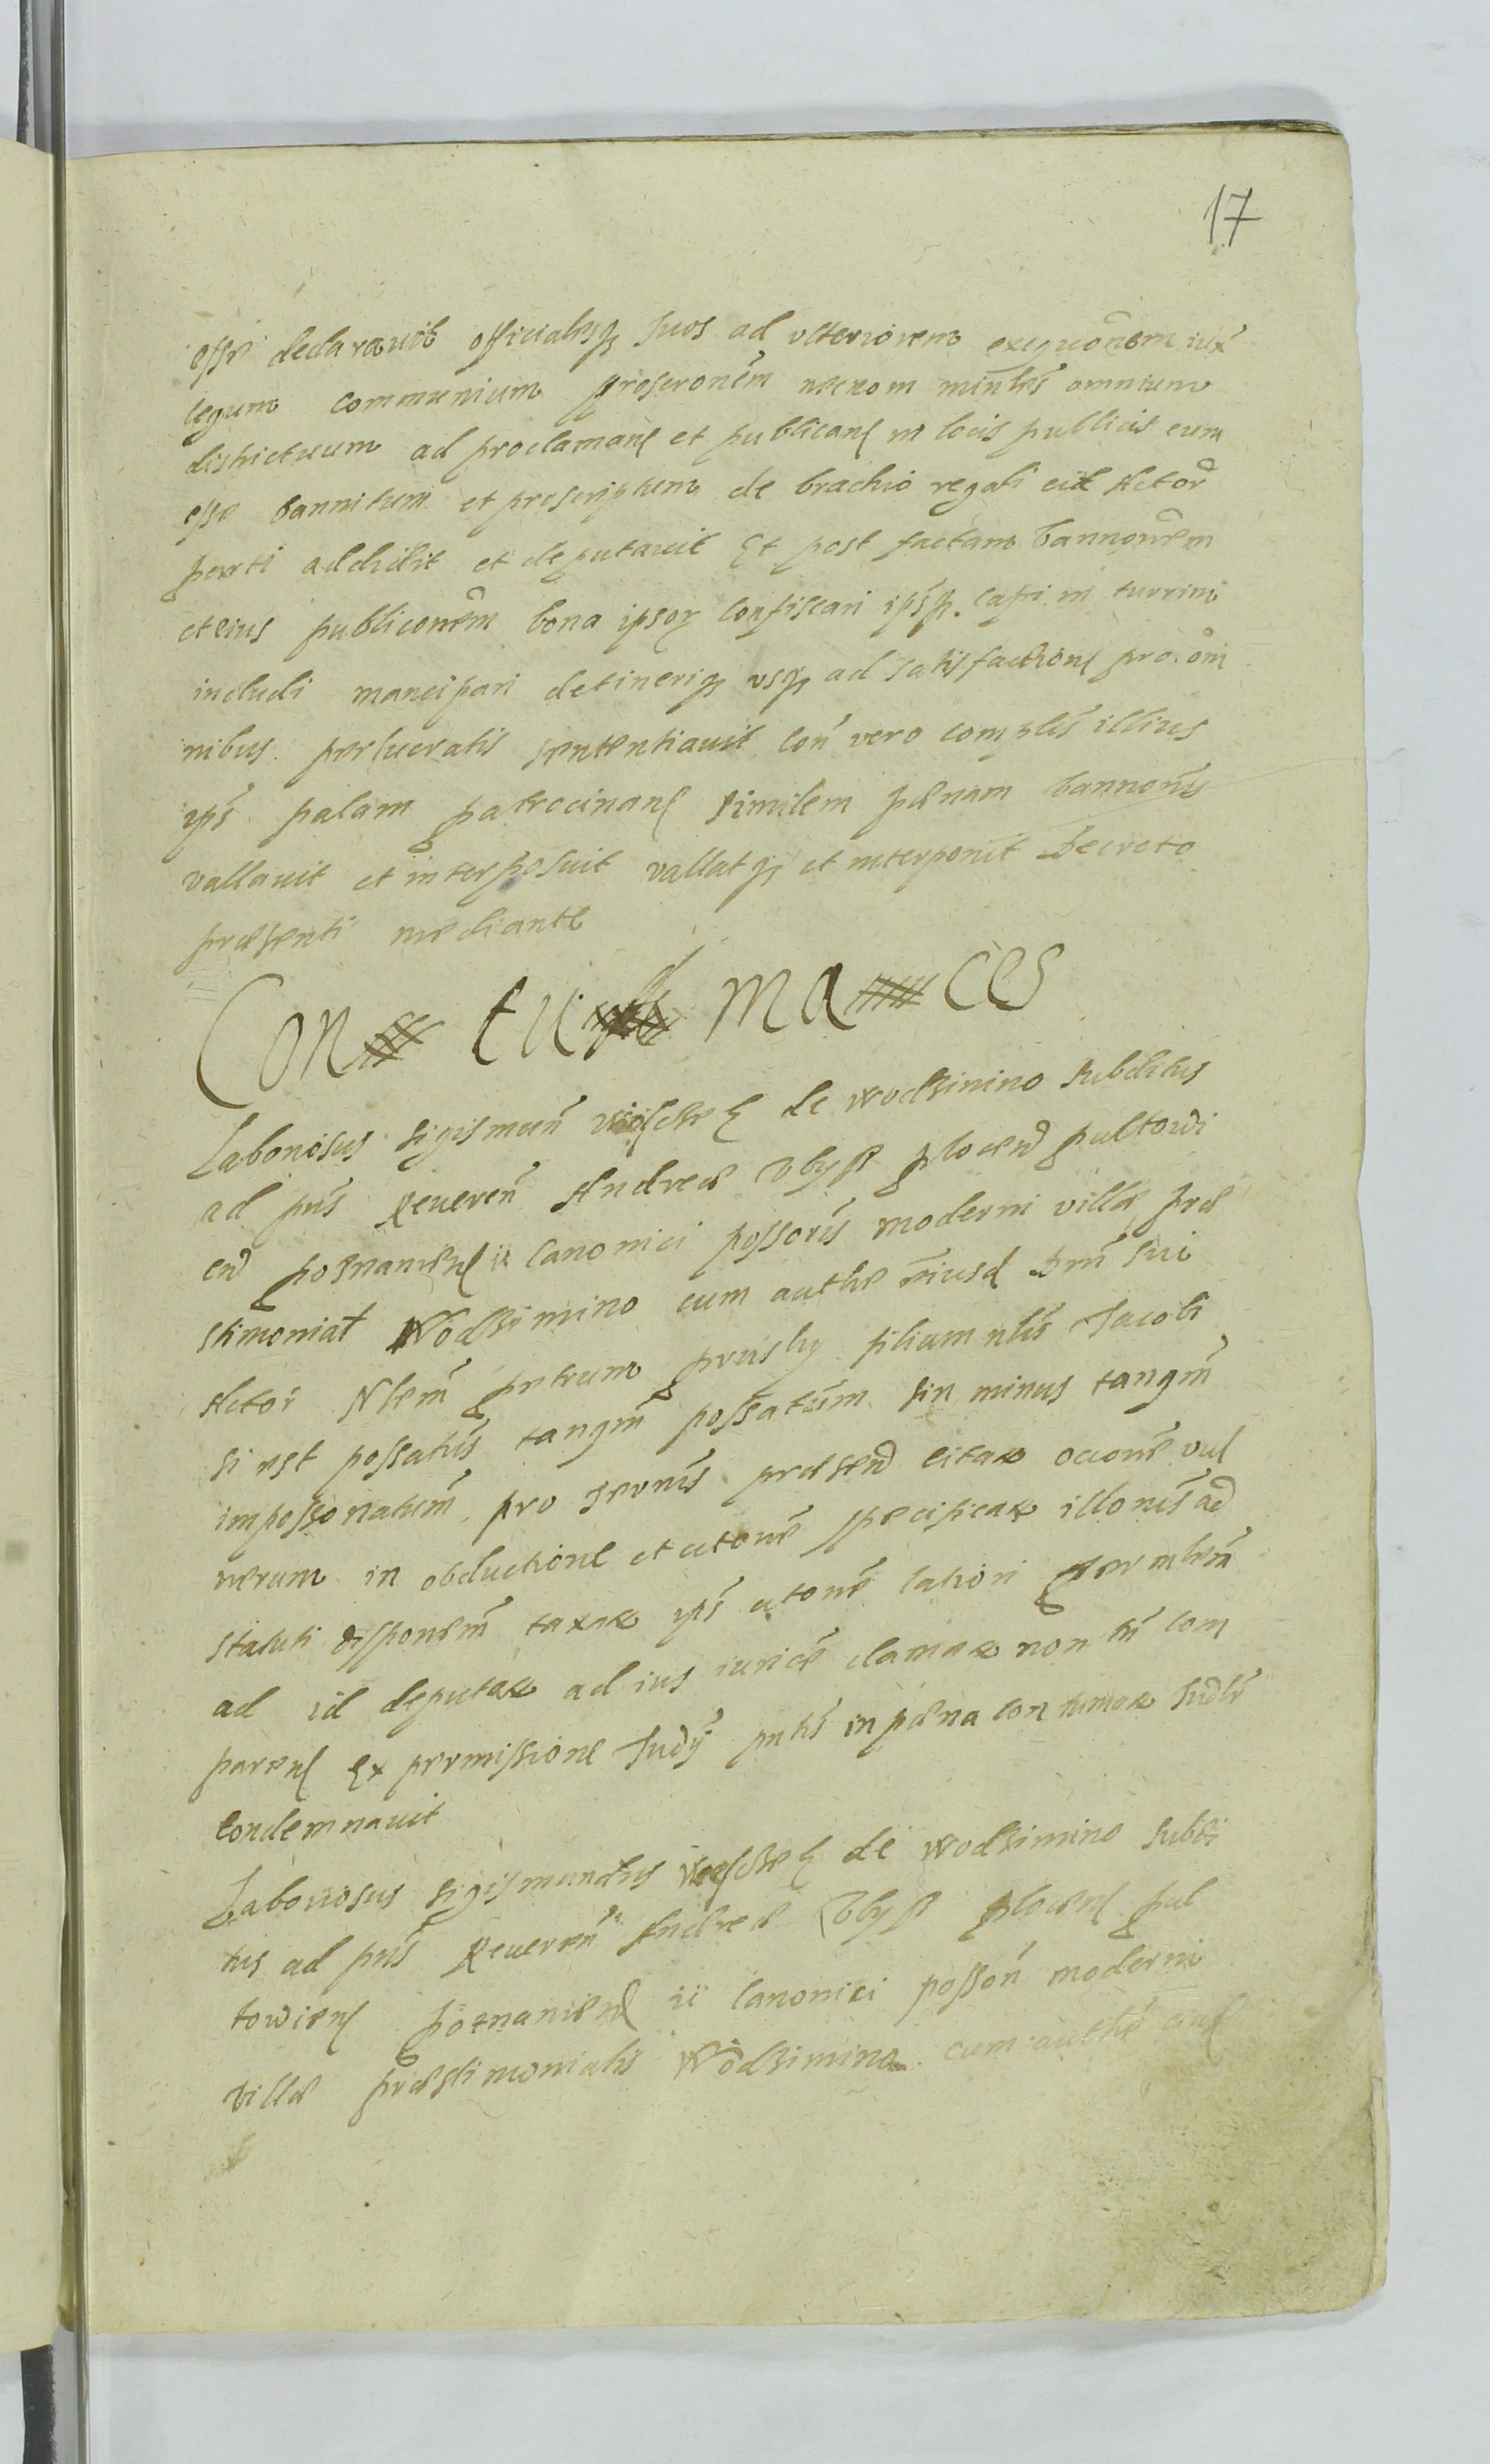 17
esse declarauit officialesq suos ad vlteriorem exequonem iux
legum communium proscronem necnom mintris omnium
districtuum ad proclamand et publicand in locis publicis eum
esse bannitum et proscriptum de brachio regali eid Actor
parti addidit et deputauit Et post factam bannonem
et eius publiconem bona ipsor confiscari ipsq capi in turrim
includi mancipari detineriq vsq ad satisfaction pro om
nibus perlucratis sententiauit Con vero complis illius
ips palam patrocinand similem pœnam bannonis
vallauit et interposuit vallatq et interponit Decreto
præsenti mediante
Con tu ma ces
Laboriosus Sigismun de Wodzinino subditus
ad pns Reueren Andreæ Vbysz plocen pultowi
en posnanien ii Canonici possoris moderni villæ præ
stimoniat Wodzimino cum authe eiusd Dni sui
Actor Nlem petrum filium nlis Jacobi
si est possatus tanqm possatum sin minus tanqm
impossonatum pro præsend citax ocione vul
nerum in obductione et citone specificax illonis ad
statuti disponem taxax ips citone lation
ad id deputax ad ius iurice clamax non tn com
parend Ex permissione Judÿ pntis in pœna contumax
condemnauit
Laboriosus Sigismundus de Wodzimino subdi
tus ad pns Reueren Andreæ Vbysz plocen pul
towien posnanien ii Canonici posson moderni
villæ præstimonialis Wodzimino cum authe eiusd